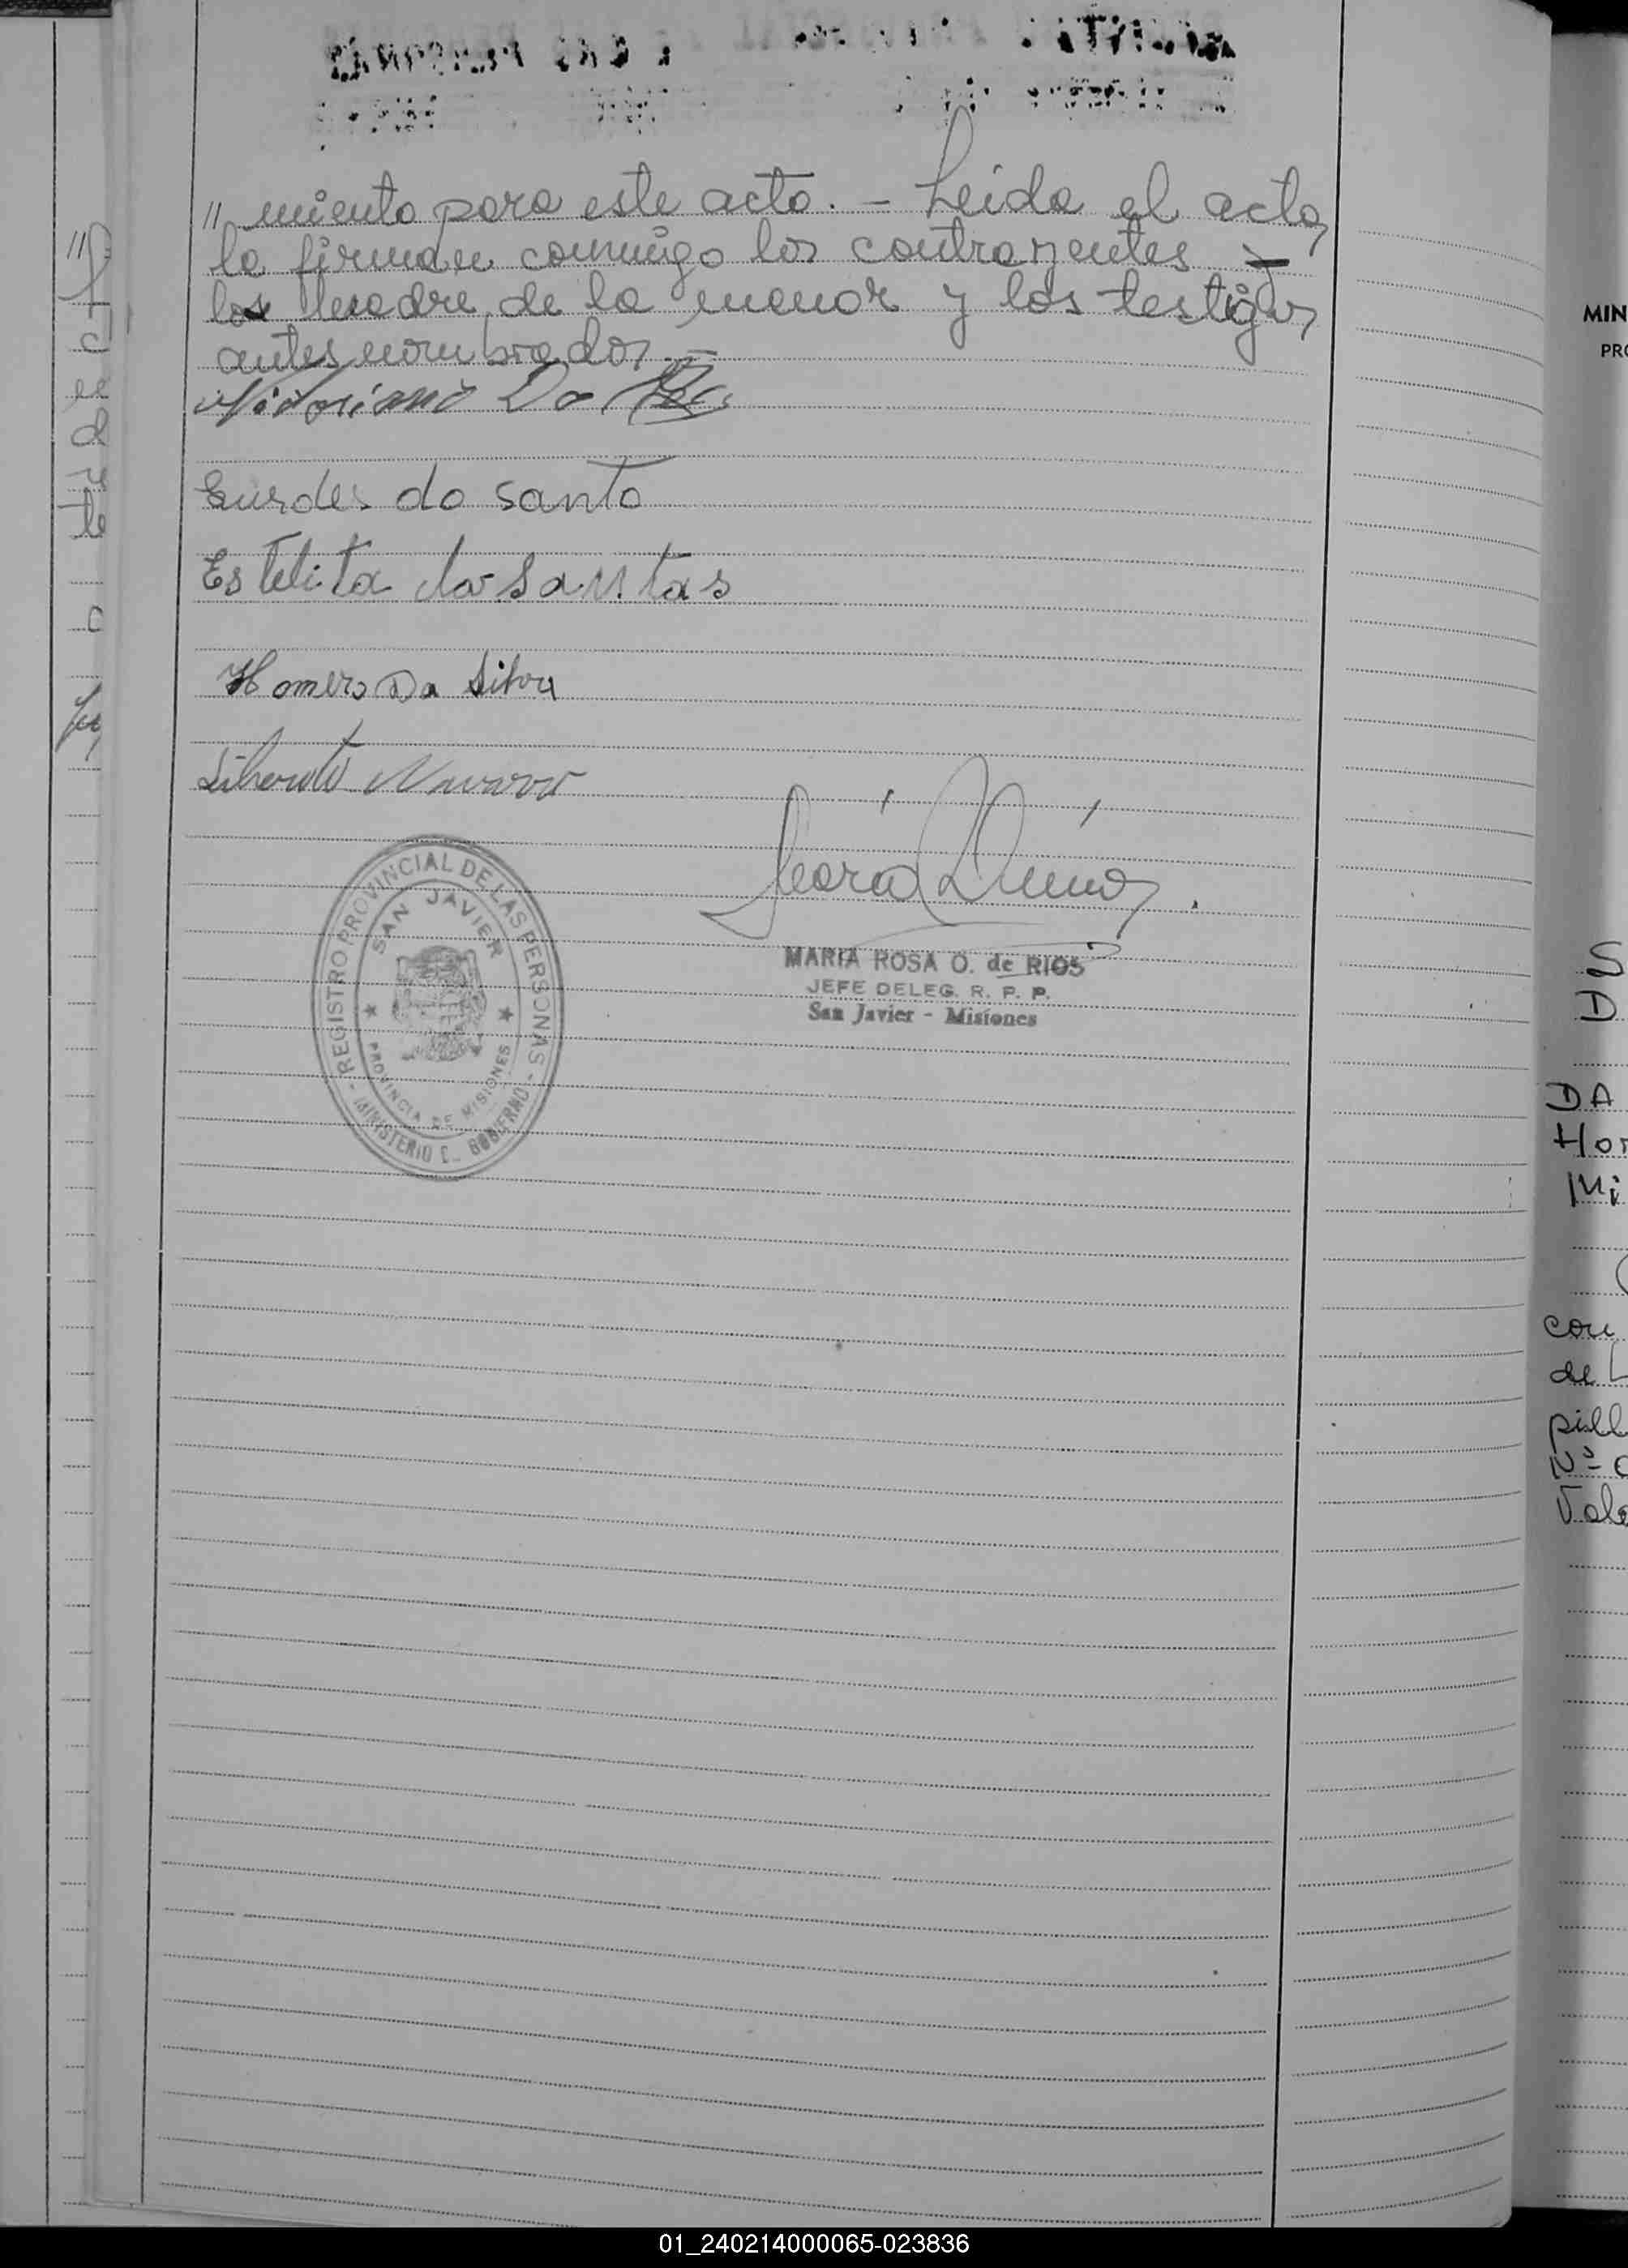 // miento para este acto. - Leida el acta,
la firman conmigo los contrayentes y
la madre de la menor y los testigos
antes nombrados. -
Victoriano Da
Lurdes do santo
Estelita dos Santas
Homero Da Silva
Liberato Navarro
MARIA ROSA O. de RIOS
JEFE DELEG. R. P. P.
San Javier - Misiones
- REGISTRO PROVINCIAL DE LAS PERSONAS -
SAN JAVIER
PROVINCIA DE MISIONES
MINISTERIO D. GOBIERNO
MIN
PRO
S
D
DA
Hor
Mi
con
de L
pill
Nº
Vale
01_240214000065-023836